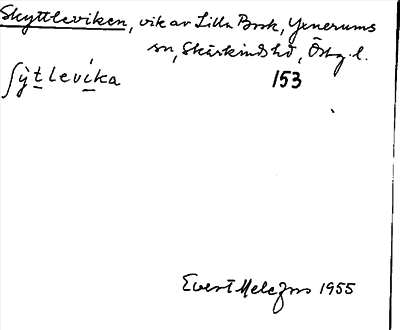 Skyttleviken, vik av Lilla Bosk, Yxnerums
sn, Skärkinds hd, Östg. l.
ʃỳtlevíka 153
Evert Melefors 1955